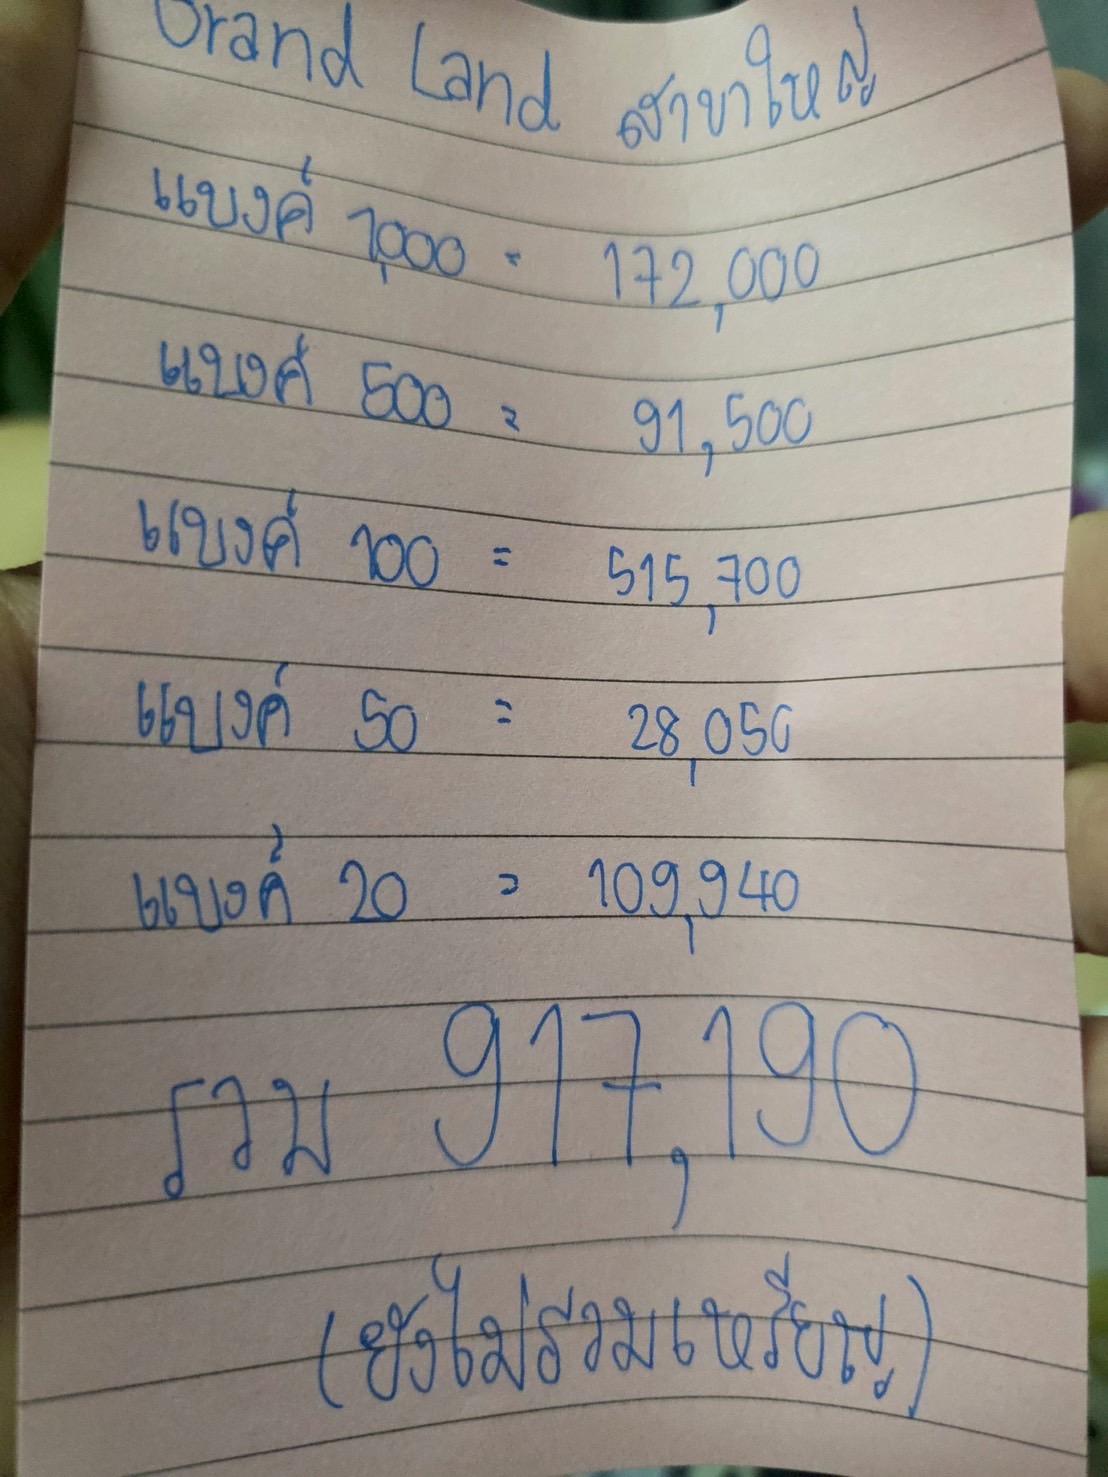 Grand Land สาขาใหญ่
แบงค์ 1,000 = 172,000
แบงค์ 500 = 91,500
แบงค์ 100 = 515,700
แบงค์ 50 = 28,050
แบงค์ 20 = 109,940
รวม 917,190
(ยังไม่รวมเหรียญ)